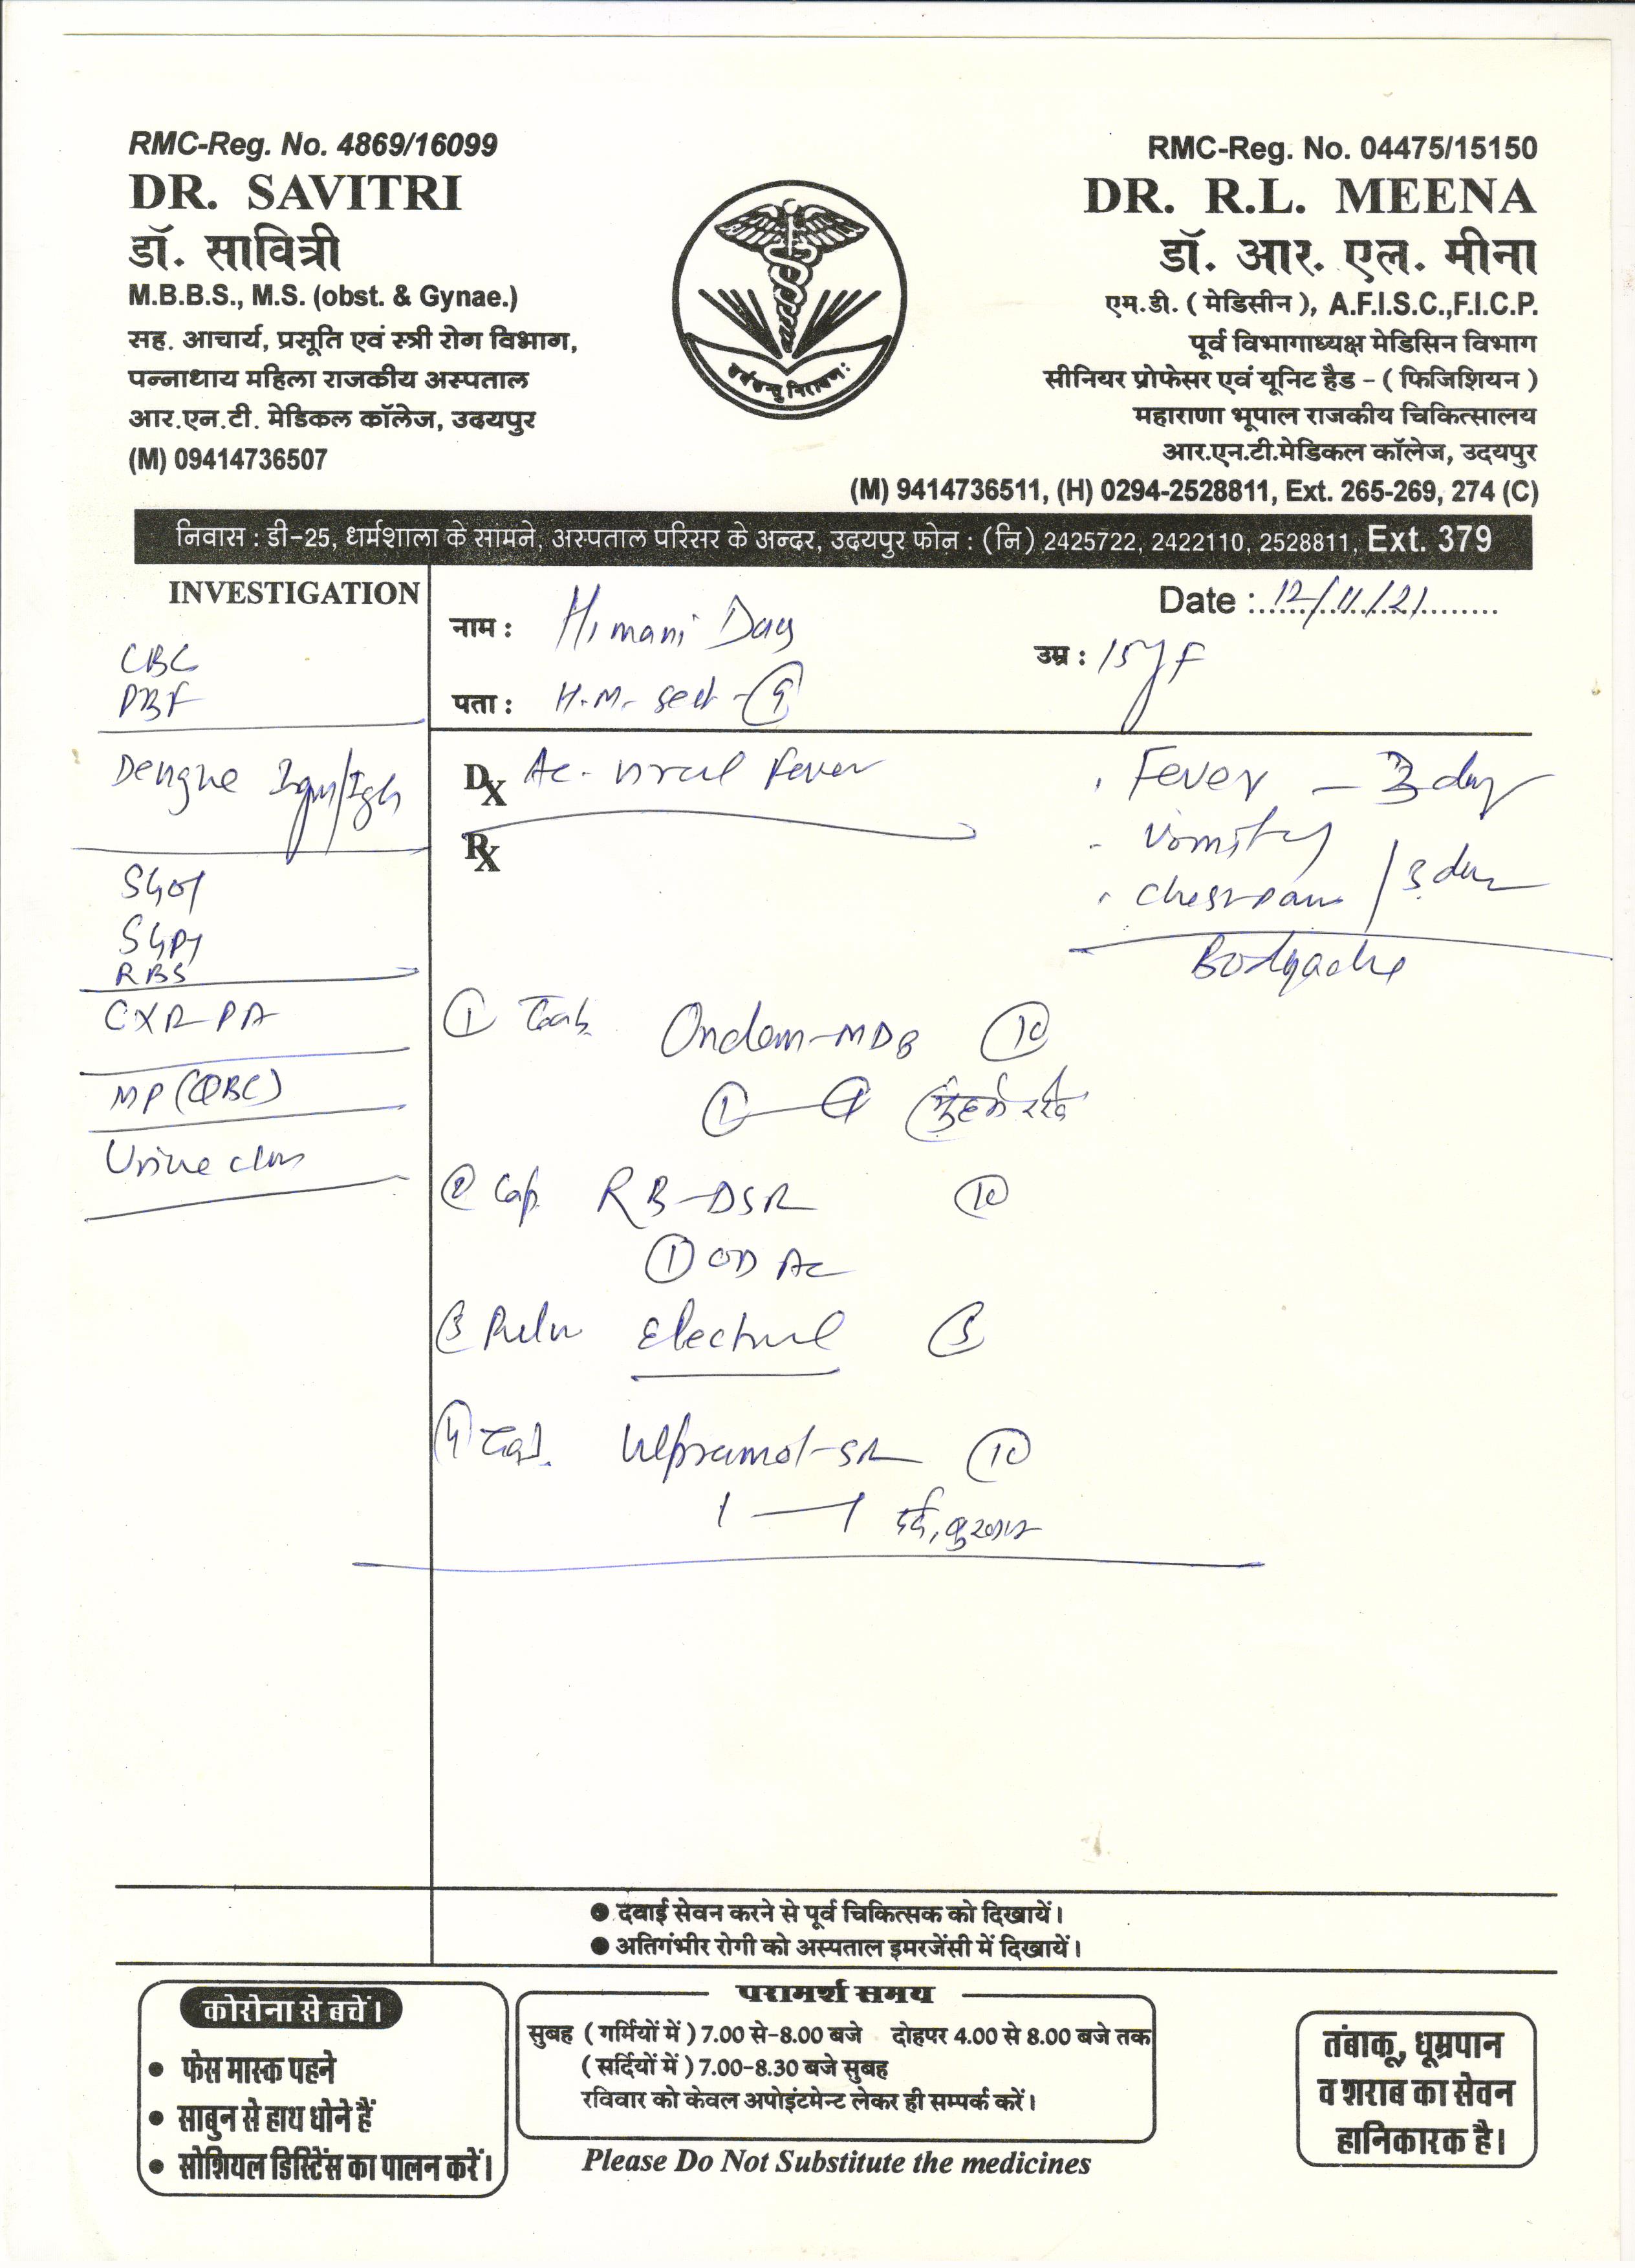 RMC-Reg. No. 4869/16099
DR. SAVITRI
डॉ. सावित्री
M.B.B.S., M.S. (obst. & Gynae.)
सह. आचार्य, प्रसूति एवं स्त्री रोग विभाग,
पन्नाधाय महिला राजकीय अस्पताल
आर.एन.टी. मेडिकल कॉलेज, उदयपुर
(M) 09414736507
RMC-Reg. No. 04475/15150
DR. R.L. MEENA
डॉ. आर. एल. मीना
एम.डी. ( मेडिसीन ), A.F.I.S.C.,F.I.C.P.
पूर्व विभागाध्यक्ष मेडिसिन विभाग
सीनियर प्रोफेसर एवं यूनिट हैड - ( फिजिशियन )
महाराणा भूपाल राजकीय चिकित्सालय
आर.एन.टी.मेडिकल कॉलेज, उदयपुर
(M) 9414736511, (H) 0294-2528811, Ext. 265-269, 274 (C)
निवास : डी-25, धार्मशाला के सामने, अस्पताल परिसर के अन्दर, उदयपुर फोन : (नि) 2425722, 2422110, 2528811, Ext. 379
INVESTIGATION
CBC
PBF
Dengue Igm/IgG
SGOT
SGPT
RBS
CXR-PA
MP (QBC)
Urine
Date : 12/11/21
नाम : Himani
उम्र : 15y F
पता : H.M. Sect - 9
Dx Ac- viral Fever
Rx
. Fever - 3 day
- Vomity
. Chest pain / 3 day
Bodyache
① Tab. Ondem-MD8 10
1 — 1
② Cap. RB-DSR 10
① OD AC
3 Electral
4 Tab. -SR 10
1 — 1 दर्द, बुखार
● दवाई सेवन करने से पूर्व चिकित्सक को दिखायें।
● अतिगंभीर रोगी को अस्पताल इमरजेंसी में दिखायें।
कोरोना से बचें।
● फेस मास्क पहने
● साबुन से हाथ धोने हैं
● सोशियल डिस्टिेंस का पालन करें।
परामर्श समय
सुबह ( गर्मियों में ) 7.00 से-8.00 बजे दोहपर 4.00 से 8.00 बजे तक
( सर्दियों में ) 7.00-8.30 बजे सुबह
रविवार को केवल अपोइंटमेन्ट लेकर ही सम्पर्क करें।
Please Do Not Substitute the medicines
तंबाकू, धूम्रपान
व शराब का सेवन
हानिकारक है।